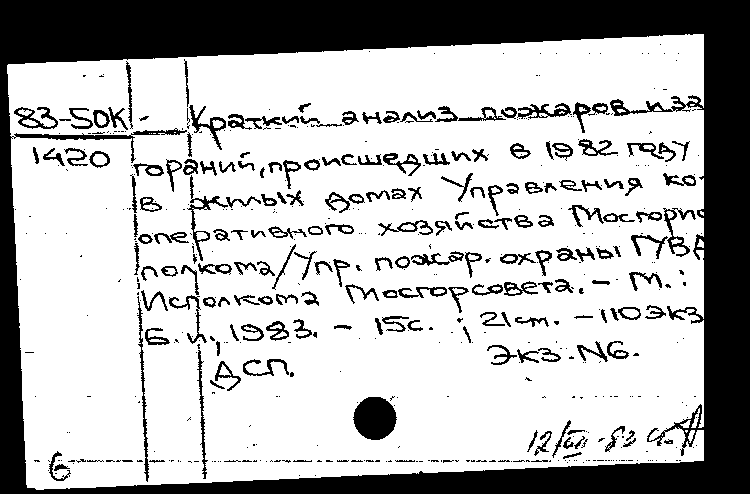 83-50К - Краткий анализ пожаров и за
1420 гораний, происшедших в 1982 году
в жилых домах Управления ко-
оперативного хозяйства Мосгорис
полкома/Упр. пожар. охраны ГУВД
Исполкома Мосгорсовета. - М.:
Б.и., 1983. - 15с. ; 21см. - 110экз
ДСП. Экз. N6.
12/VIII-83
6